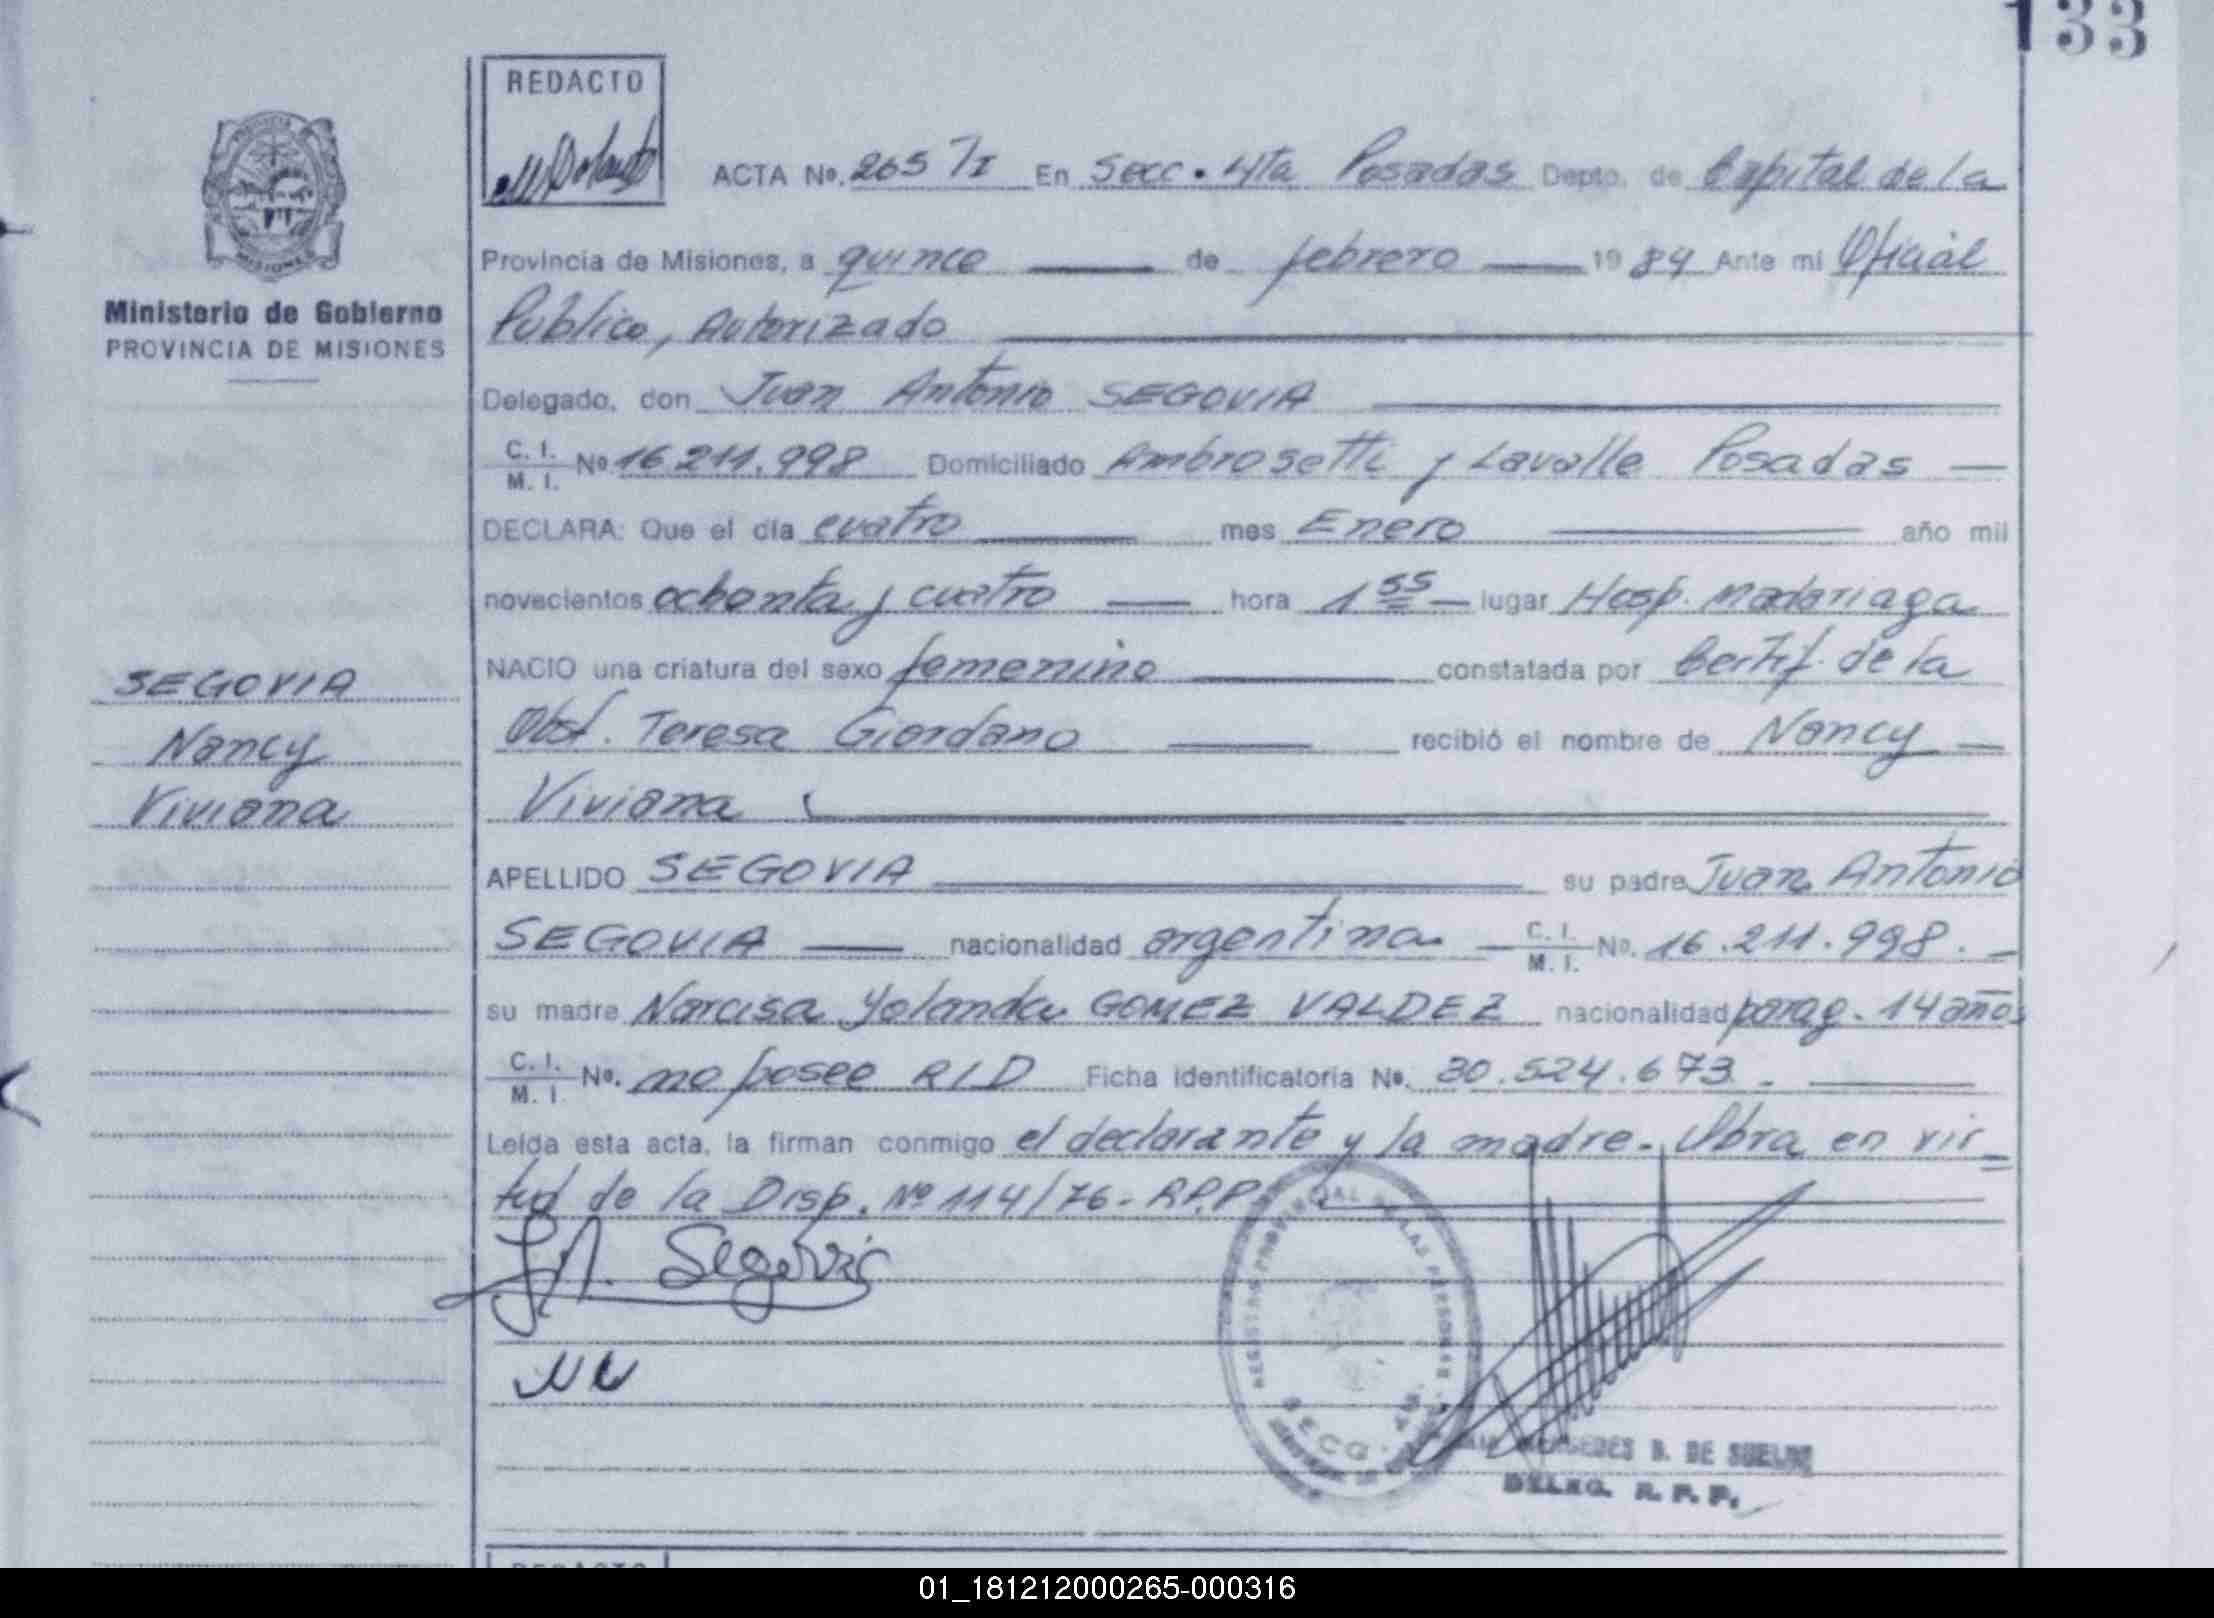 133
REDACTO
ACTA No. 265 7/I En Secc. 4ta Posadas Depto. de Capital de la
Provincia de Misiones, a quince de febrero 1984 Ante mi Oficial
Público, Autorizado
Delegado, don Juan Antonio SEGOVIA
C. I.
M. I. No 16.211.998 Domiciliado Ambrosetti y Lavalle Posadas
DECLARA: Que el día cuatro mes Enero año mil
novecientos ochenta y cuatro hora 1 55 lugar Hosp. Madariaga
NACIO una criatura del sexo femenino constatada por Certif. de la
Obst. Teresa Giordano recibió el nombre de Nancy
Viviana
APELLIDO SEGOVIA su padre Juan Antonio
SEGOVIA nacionalidad argentina C. I.
M. I. No. 16.211.998.
su madre Narcisa Yolanda GOMEZ VALDEZ nacionalidad parag. 14 años
C. I.
M. I. No. no posee RID Ficha identificatoria No. 30.524.673.
Leída esta acta, la firman conmigo el declarante y la madre. Obra en vir
tud de la Disp. Nº 114/76-R.P.P.
J A. Segovia
Ministerio de Gobierno
PROVINCIA DE MISIONES
SEGOVIA
Nancy
Viviana
REGISTRO PROVINCIAL DE LAS PERSONAS
SECC. 4ta.
MERSEDES B. DE SUELDO
DELEG. R. P. P.
REDACTO
01_181212000265-000316